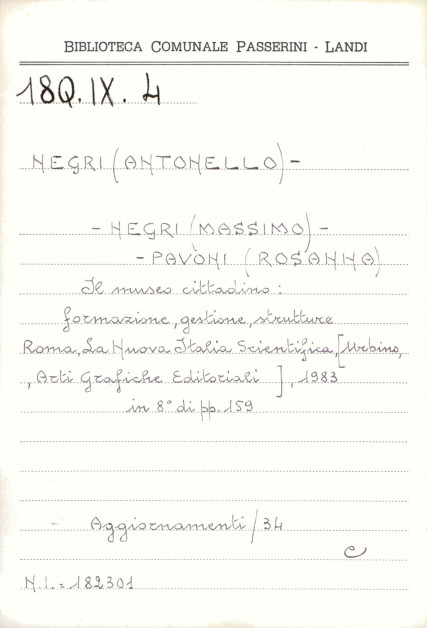 BIBLIOTECA COMUNALE PASSERINI - LANDI
18Q.IX. 4
NEGRI (ANTONELLO) -
- NEGRI (MASSIMO) -
- PAVONI (ROSANNA)
Il museo cittadino:
formazione, gestione, strutture
Roma, La Nuova Italia Scientifica, [Urbino,
, Arti Grafiche Editoriali ], 1983
in 8° di pp. 159
- Aggiornamenti / 34
e
N.I. = 182301